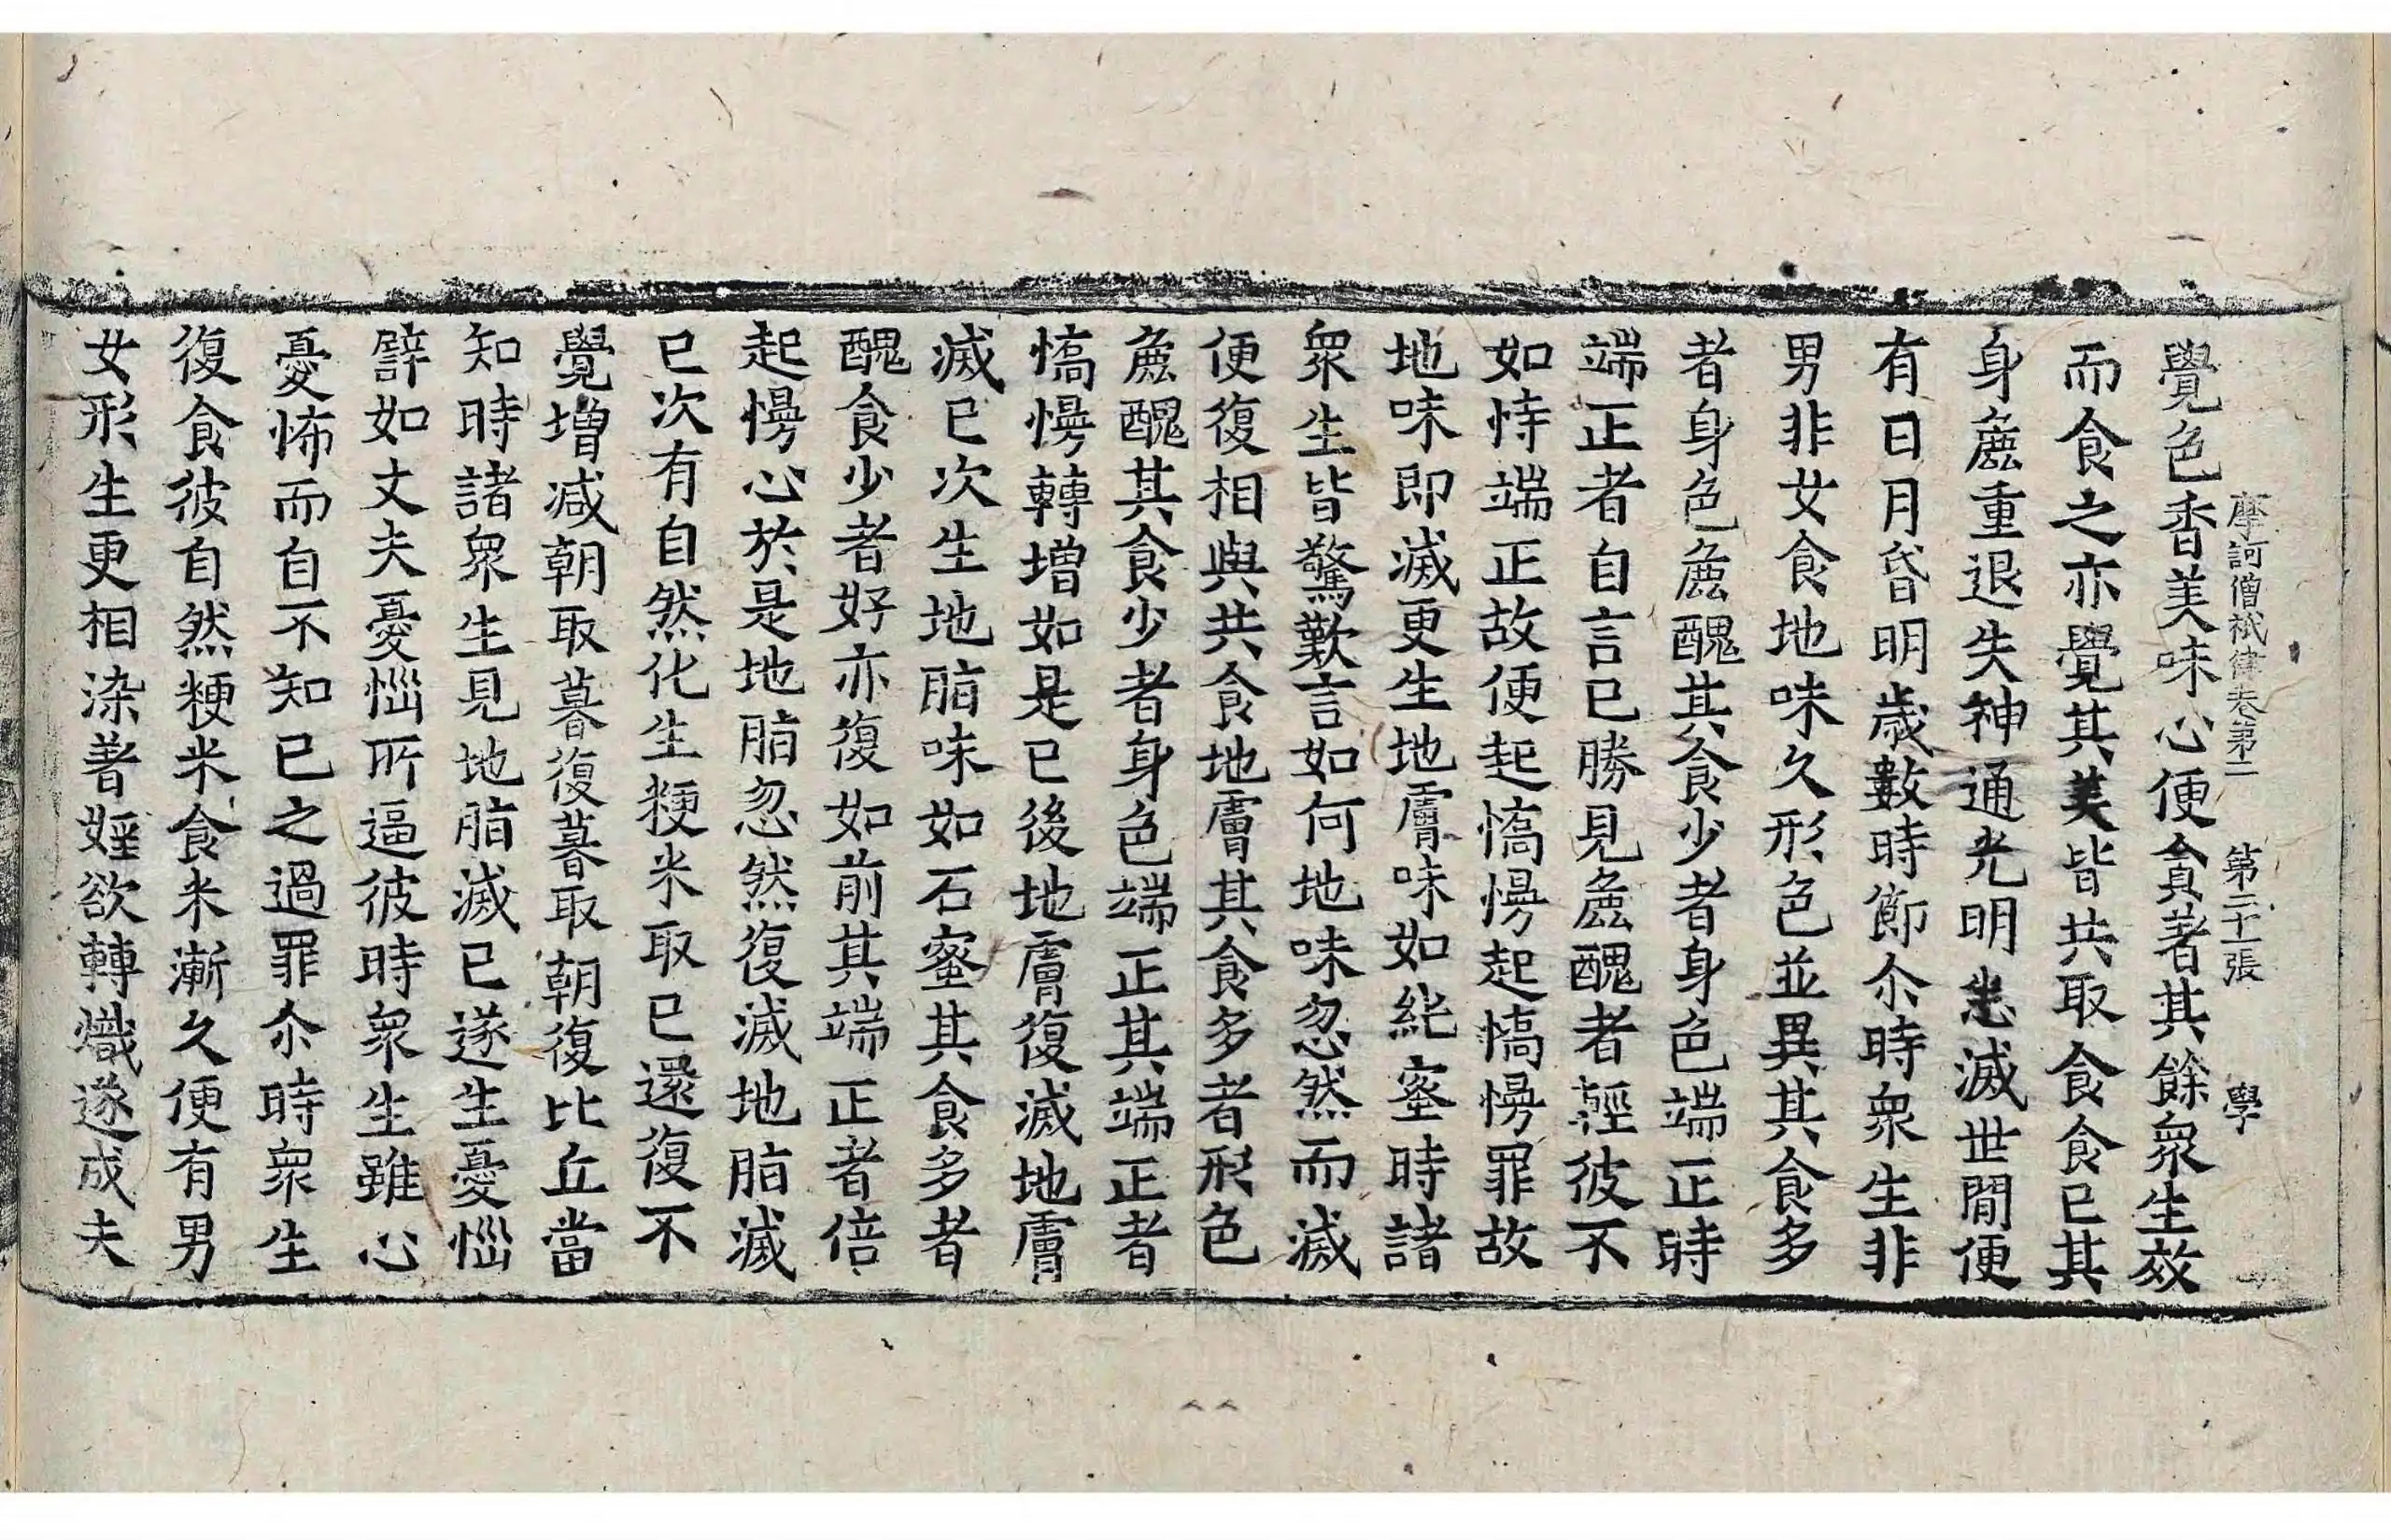 摩訶僧祇律卷第二 第二十一張 學
覺色香美味心便貪著其餘衆生效
而食之亦覺其美皆共取食食已其
身麁重退失神通光明悉滅世間便
有日月昏明歲數時節尒時衆生非
男非女食地味久形色並異其食多
者身色麁醜其食少者身色端正時
端正者自言已勝見麁醜者輕彼不
如恃端正故便起憍慢起憍慢罪故
地味即滅更生地膚味如純蜜時諸
衆生皆驚歎言如何地味忽然而滅
便復相與共食地膚其食多者形色
麁醜其食少者身色端正其端正者
憍慢轉增如是已後地膚復滅地膚
滅已次生地脂味如石蜜其食多者
醜食少者好亦復如前其端正者倍
起慢心於是地脂忽然復滅地脂滅
已次有自然化生粳米取已還復不
覺增減朝取暮復暮取朝復比丘當
知時諸衆生見地脂滅已遂生憂惱
譬如丈夫憂惱所逼彼時衆生雖心
憂怖而自不知已之過罪尒時衆生
復食彼自然粳米食米漸久便有男
女形生更相染著婬欲轉熾遂成夫